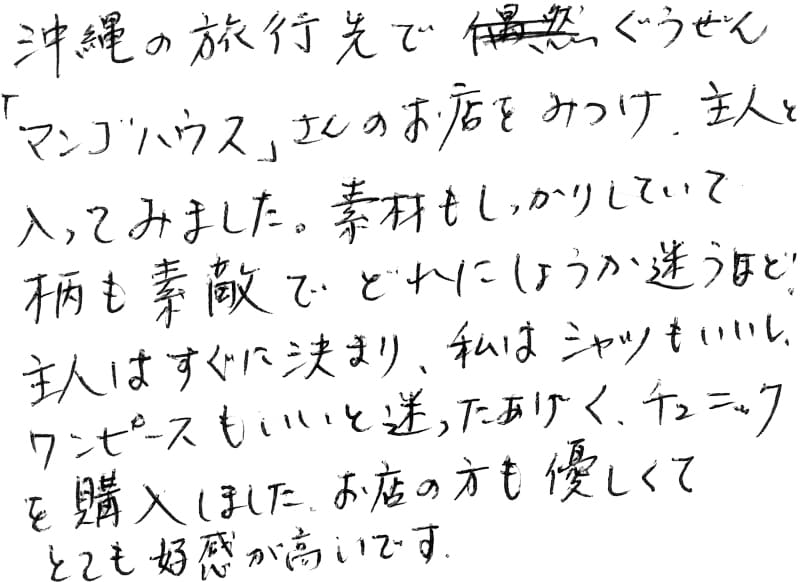 沖縄の旅行先で ぐうぜん
「マンゴハウス」さんのお店をみつけ、主人と
入ってみました。素材もしっかりしていて
柄も素敵で どれにしようか迷うほど!
主人はすぐに決まり、私は シャツもいいし、
ワンピースもいいと迷ったあげく、チュニック
を購入しました。お店の方も優しくて
とても好感が高いです。